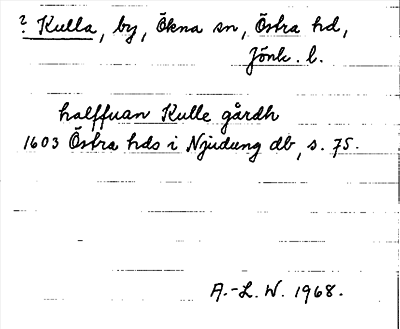 ? Kulla, by, Ökna sn, Östra hd,
Jönk. l.
halffuan Kulle gårdh
1603 Östra hds i Njudung db, s. 75.
A.-L. W. 1968.